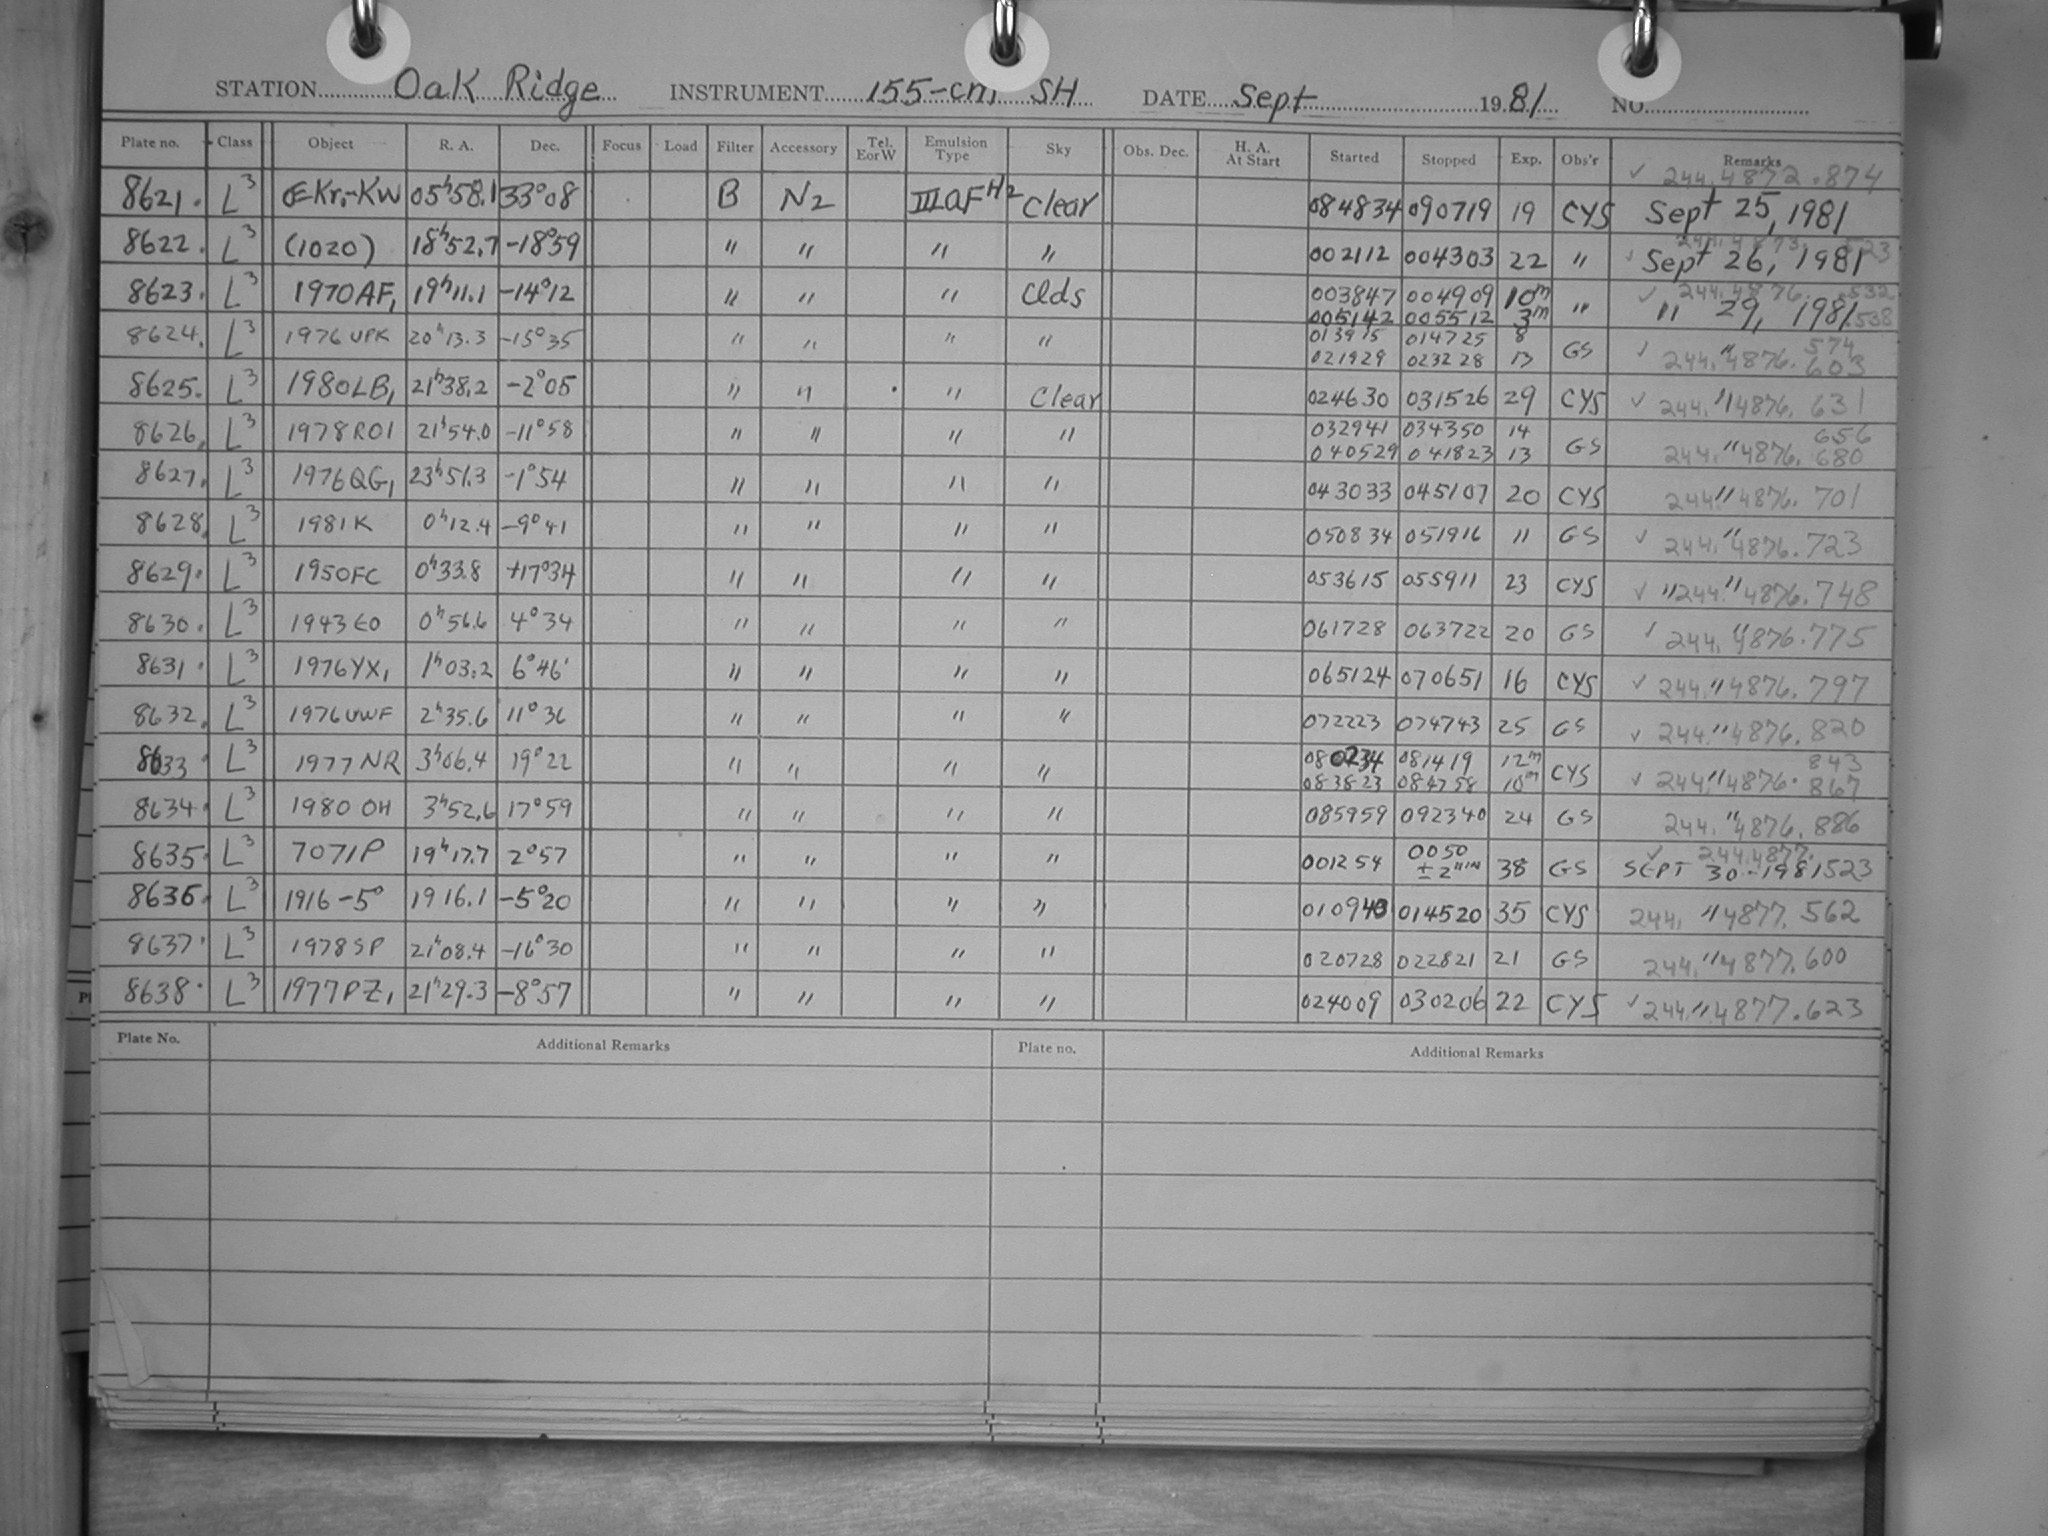 STATION Oak Ridge INSTRUMENT 155-cm SH DATE Sept 1981 NO.
Plate no. Class Object R. A. Dec. Focus Load Filter Accessory Tel. E or W Emulsion Type Sky Obs. Dec. H. A. At Start Started Stopped Exp. Obs'r Remarks
✓ 244.4872.874
8621. L³ 05ʰ58.1 33°08 B N2 IIIaF H2 Clear 084834 090719 19 CYS Sept 25, 1981
8622. L³ (1020) 18ʰ52.7 -18°59 " " " " 002112 004303 22 " ✓ Sept 26, 1981
8623. L³ 1970AF₁ 19ʰ11.1 -14°12 " " " Clds 003847 004909 10ᵐ " ✓ 244.4876.532
005142 005512 3ᵐ " 29, 1981 .538
8624. L³ 1976UPK 20ʰ13.3 -15°35 " " " " 013915 014725 8 GS ✓ 574
021929 023228 13 244."4876.603
8625. L³ 1980LB₁ 21ʰ38.2 -2°05 " " " Clear 024630 031526 29 CYS ✓ 244."4876.631
8626. L³ 1978RO1 21ʰ54.0 -11°58 " " " " 032941 034350 14 GS 656
040529 041823 13 244."4876.680
8627. L³ 1976QG₁ 23ʰ51.3 -1°54 " " " " 043033 045107 20 CYS 244."4876.701
8628. L³ 1981K 0ʰ12.4 -9°41 " " " " 050834 051916 11 GS ✓ 244."4876.723
8629. L³ 1950FC 0ʰ33.8 +17°34 " " " " 053615 055911 23 CYS ✓ "244."4876.748
8630. L³ 1943EO 0ʰ56.6 4°34 " " " " 061728 063722 20 GS ✓ 244."4876.775
8631. L³ 1976YX₁ 1ʰ03.2 6°46' " " " " 065124 070651 16 CYS ✓ 244."4876.797
8632. L³ 1976UWF 2ʰ35.6 11°36 " " " " 072223 074743 25 GS ✓ 244."4876.820
8633 L³ 1977NR 3ʰ06.4 19°22 " " " " 080234 081419 12ᵐ CYS 843
083823 084758 10ᵐ ✓ 244."4876.867
8634. L³ 1980 OH 3ʰ52.6 17°59 " " " " 085959 092340 24 GS 244."4876.886
8635. L³ 7071P 19ʰ17.7 2°57 " " " " 001254 0050 ± 2 MIN 38 GS ✓ 244.4877.
SEPT 30-1981 523
8636. L³ 1916-5° 1916.1 -5°20 " " " " 010943 014520 35 CYS 244."4877.562
8637. L³ 1978SP 21ʰ08.4 -16°30 " " " " 020728 022821 21 GS 244."4877.600
8638. L³ 1977PZ₁ 21ʰ29.3 -8°57 " " " " 024009 030206 22 CYS ✓ 244."4877.623
Plate No. Additional Remarks Plate no. Additional Remarks